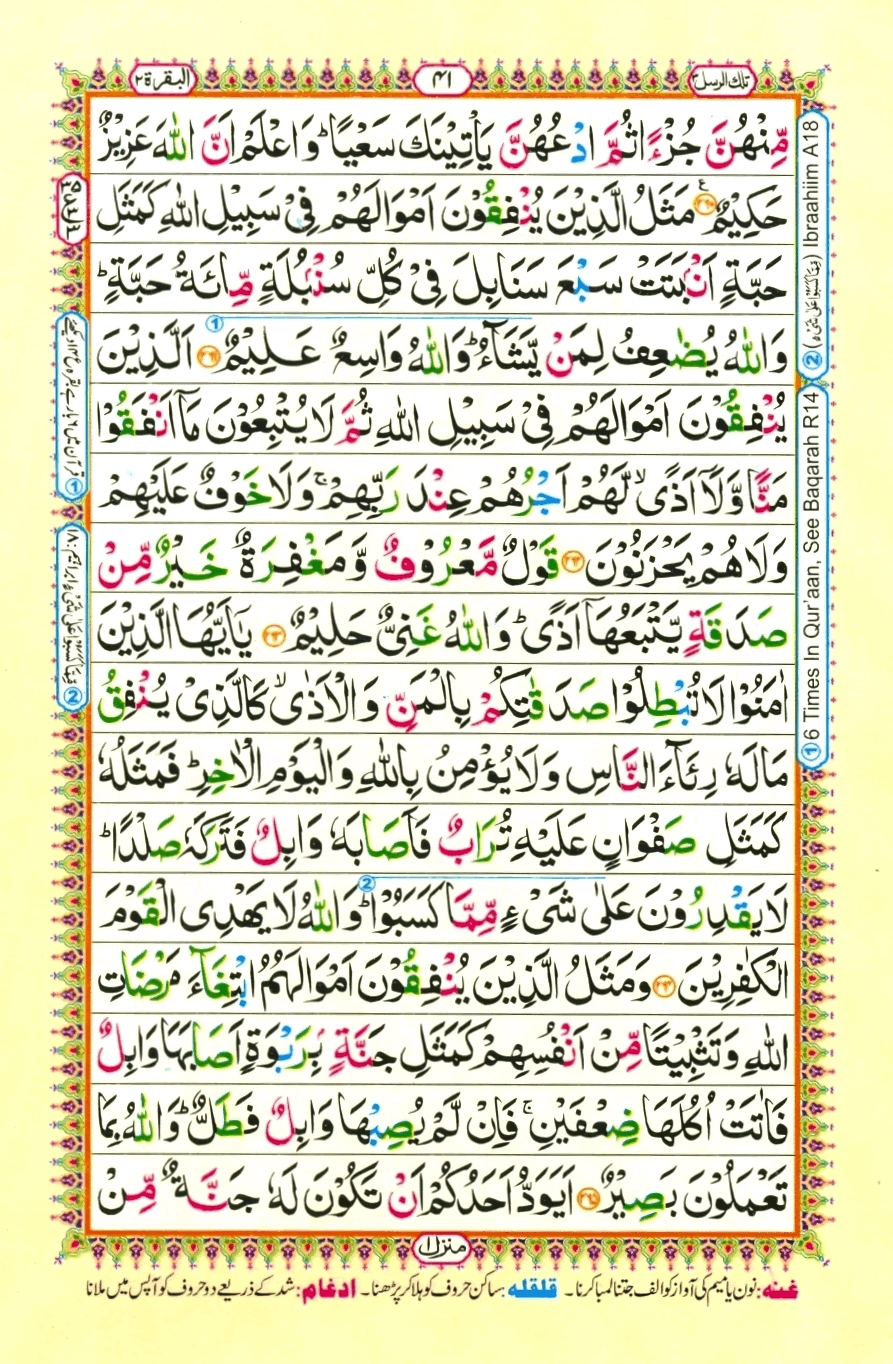 تلك الرسل ٣
٤١
البقرة ٢
مِّنْهُنَّ جُزْءًا ثُمَّ ادْعُهُنَّ يَاْتِيْنَكَ سَعْيًا ؕ وَ اعْلَمْ اَنَّ اللّٰهَ عَزِيْزٌ
حَكِيْمٌ ۟ ٢٦٠ مَثَلُ الَّذِيْنَ يُنْفِقُوْنَ اَمْوَالَهُمْ فِيْ سَبِيْلِ اللّٰهِ كَمَثَلِ
حَبَّةٍ اَنْۢبَتَتْ سَبْعَ سَنَابِلَ فِيْ كُلِّ سُنْۢبُلَةٍ مِّائَةُ حَبَّةٍ ؕ
وَاللّٰهُ يُضٰعِفُ لِمَنْ يَّشَآءُ ؕ وَاللّٰهُ وَاسِعٌ عَلِيْمٌ ٢٦١ اَلَّذِيْنَ
يُنْفِقُوْنَ اَمْوَالَهُمْ فِيْ سَبِيْلِ اللّٰهِ ثُمَّ لَا يُتْبِعُوْنَ مَاۤ اَنْفَقُوْا
مَنًّا وَّلَاۤ اَذًى ۙ لَّهُمْ اَجْرُهُمْ عِنْدَ رَبِّهِمْ ۚ وَلَا خَوْفٌ عَلَيْهِمْ
وَلَا هُمْ يَحْزَنُوْنَ ٢٦٢ قَوْلٌ مَّعْرُوْفٌ وَّمَغْفِرَةٌ خَيْرٌ مِّنْ
صَدَقَةٍ يَّتْبَعُهَاۤ اَذًى ؕ وَاللّٰهُ غَنِيٌّ حَلِيْمٌ ٢٦٣ يٰۤاَيُّهَا الَّذِيْنَ
اٰمَنُوْا لَا تُبْطِلُوْا صَدَقٰتِكُمْ بِالْمَنِّ وَالْاَذٰى ۙ كَالَّذِيْ يُنْفِقُ
مَالَهٗ رِئَآءَ النَّاسِ وَلَا يُؤْمِنُ بِاللّٰهِ وَالْيَوْمِ الْاٰخِرِ ؕ فَمَثَلُهٗ
كَمَثَلِ صَفْوَانٍ عَلَيْهِ تُرَابٌ فَاَصَابَهٗ وَابِلٌ فَتَرَكَهٗ صَلْدًا ؕ
لَا يَقْدِرُوْنَ عَلٰى شَيْءٍ مِّمَّا كَسَبُوْا ؕ وَاللّٰهُ لَا يَهْدِى الْقَوْمَ
الْكٰفِرِيْنَ ٢٦٤ وَمَثَلُ الَّذِيْنَ يُنْفِقُوْنَ اَمْوَالَهُمُ ابْتِغَآءَ مَرْضَاتِ
اللّٰهِ وَتَثْبِيْتًا مِّنْ اَنْفُسِهِمْ كَمَثَلِ جَنَّةٍۢ بِرَبْوَةٍ اَصَابَهَا وَابِلٌ
فَاٰتَتْ اُكُلَهَا ضِعْفَيْنِ ۚ فَاِنْ لَّمْ يُصِبْهَا وَابِلٌ فَطَلٌّ ؕ وَاللّٰهُ بِمَا
تَعْمَلُوْنَ بَصِيْرٌ ٢٦٥ اَيَوَدُّ اَحَدُكُمْ اَنْ تَكُوْنَ لَهٗ جَنَّةٌ مِّنْ
① 6 Times In Qur'aan, See Baqarah R14
② (مِمَّا كَسَبُوْا عَلٰى شَيْءٍ) Ibraahiim A18
منزل ١
غنه: نون یا میم کی آواز کو الف جتنا لمبا کرنا۔ قلقله: ساکن حروف کو ہلا کر پڑھنا۔ ادغام: شد کے ذریعے دو حروف کو آپس میں ملانا